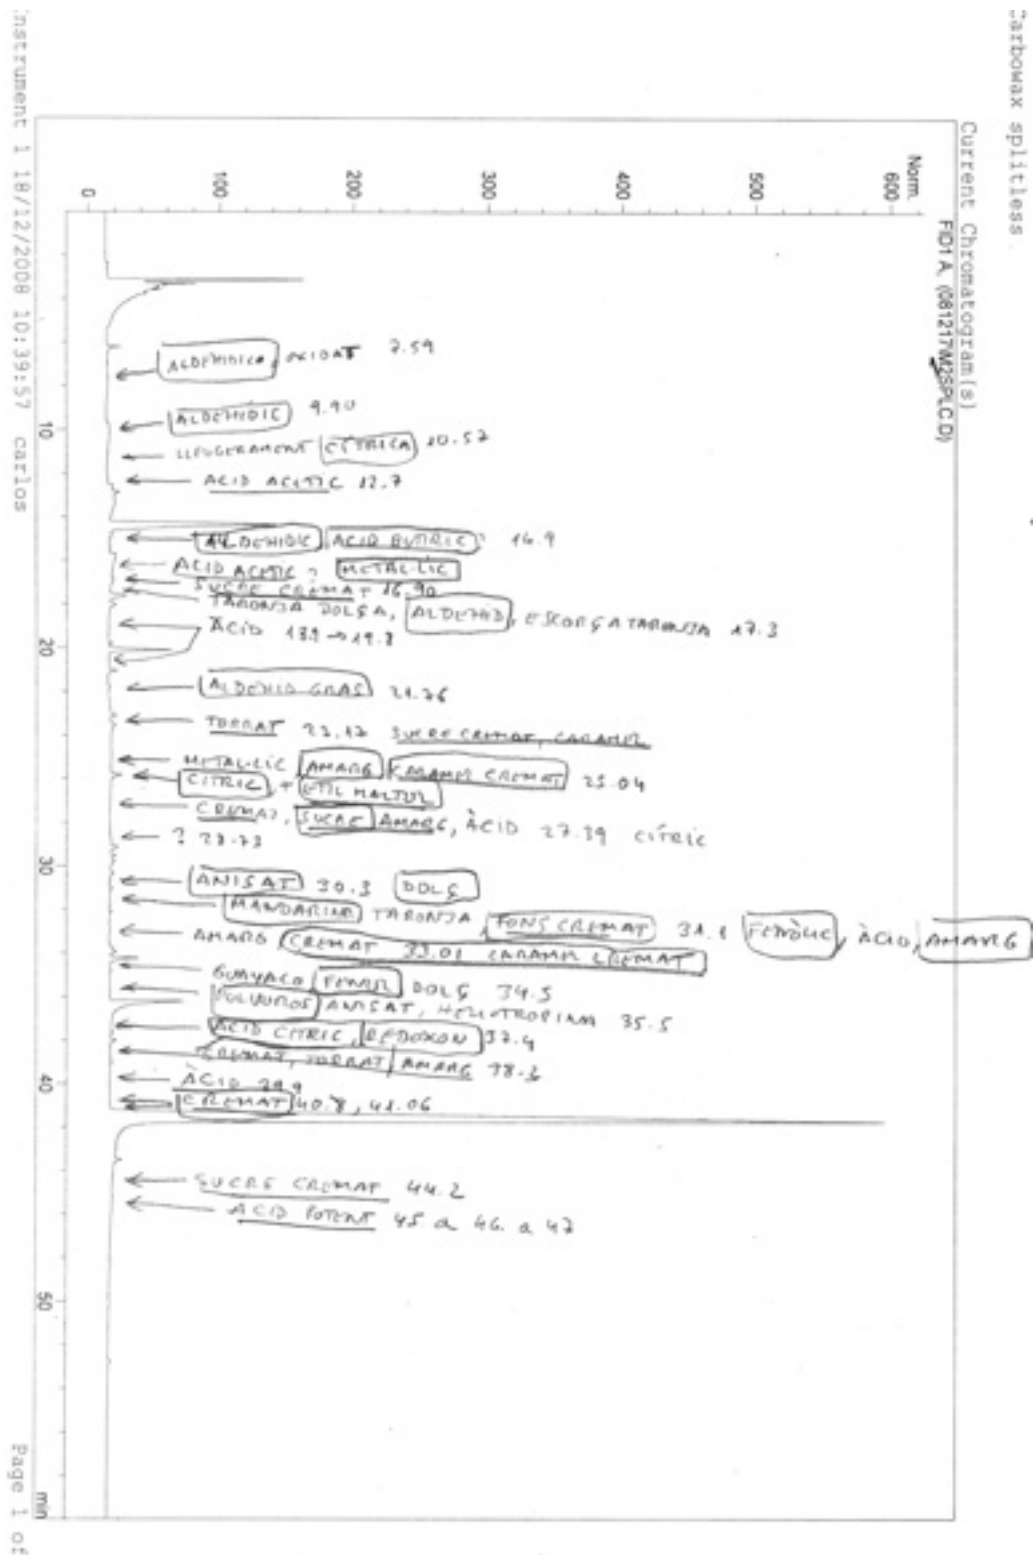 Carbowax splitless
Current Chromatogram(s)
FID1 A, (081217\M2SPLC.D)
Norm.
600
500
400
300
200
100
0
ALDEHIDICA, OXIDAT 7.59
ALDEHIDIC 9.90
10
LLEUGERAMENT CÍTRICA 10.57
ACID ACETIC 12.7
ALDEHIDIC ACID BUTIRIC? 14.9
ACID ACETIC? METAL·LIC
SUCRE CREMAT 16.90
TARONJA DOLÇA, ALDEHID, ESCORÇA TARONJA 17.3
ÀCID 18.9 → 19.8
20
ALDEHID GRAS 21.76
TORRAT 23.12 SUCRE CREMAT, CARAMEL
METAL·LIC AMARG, CARAMEL CREMAT 25.04
CITRIC, + ETIL MALTOL
CREMAT, SUCRE AMARG, ÀCID 27.39 CÍTRIC
? 28.73
30
ANISAT 30.3 DOLÇ
MANDARINA TARONJA, FONS CREMAT 31.1 FENÒLIC, ÀCID, AMARG
AMARG CREMAT 33.01 CARAMEL CREMAT
GUAYACO FENOL DOLÇ 34.5
POLVOROS ANISAT, HELIOTROPINA 35.5
ACID CITRIC, REDOXON 37.4
CREMAT, TORRAT AMARG 38.3
ÀCID 39.9
40
CREMAT 40.8, 41.06
SUCRE CREMAT 44.2
ACID POTENT 45 a 46 a 47
50
min
Instrument 1 18/12/2008 10:39:57 carlos
Page 1 of